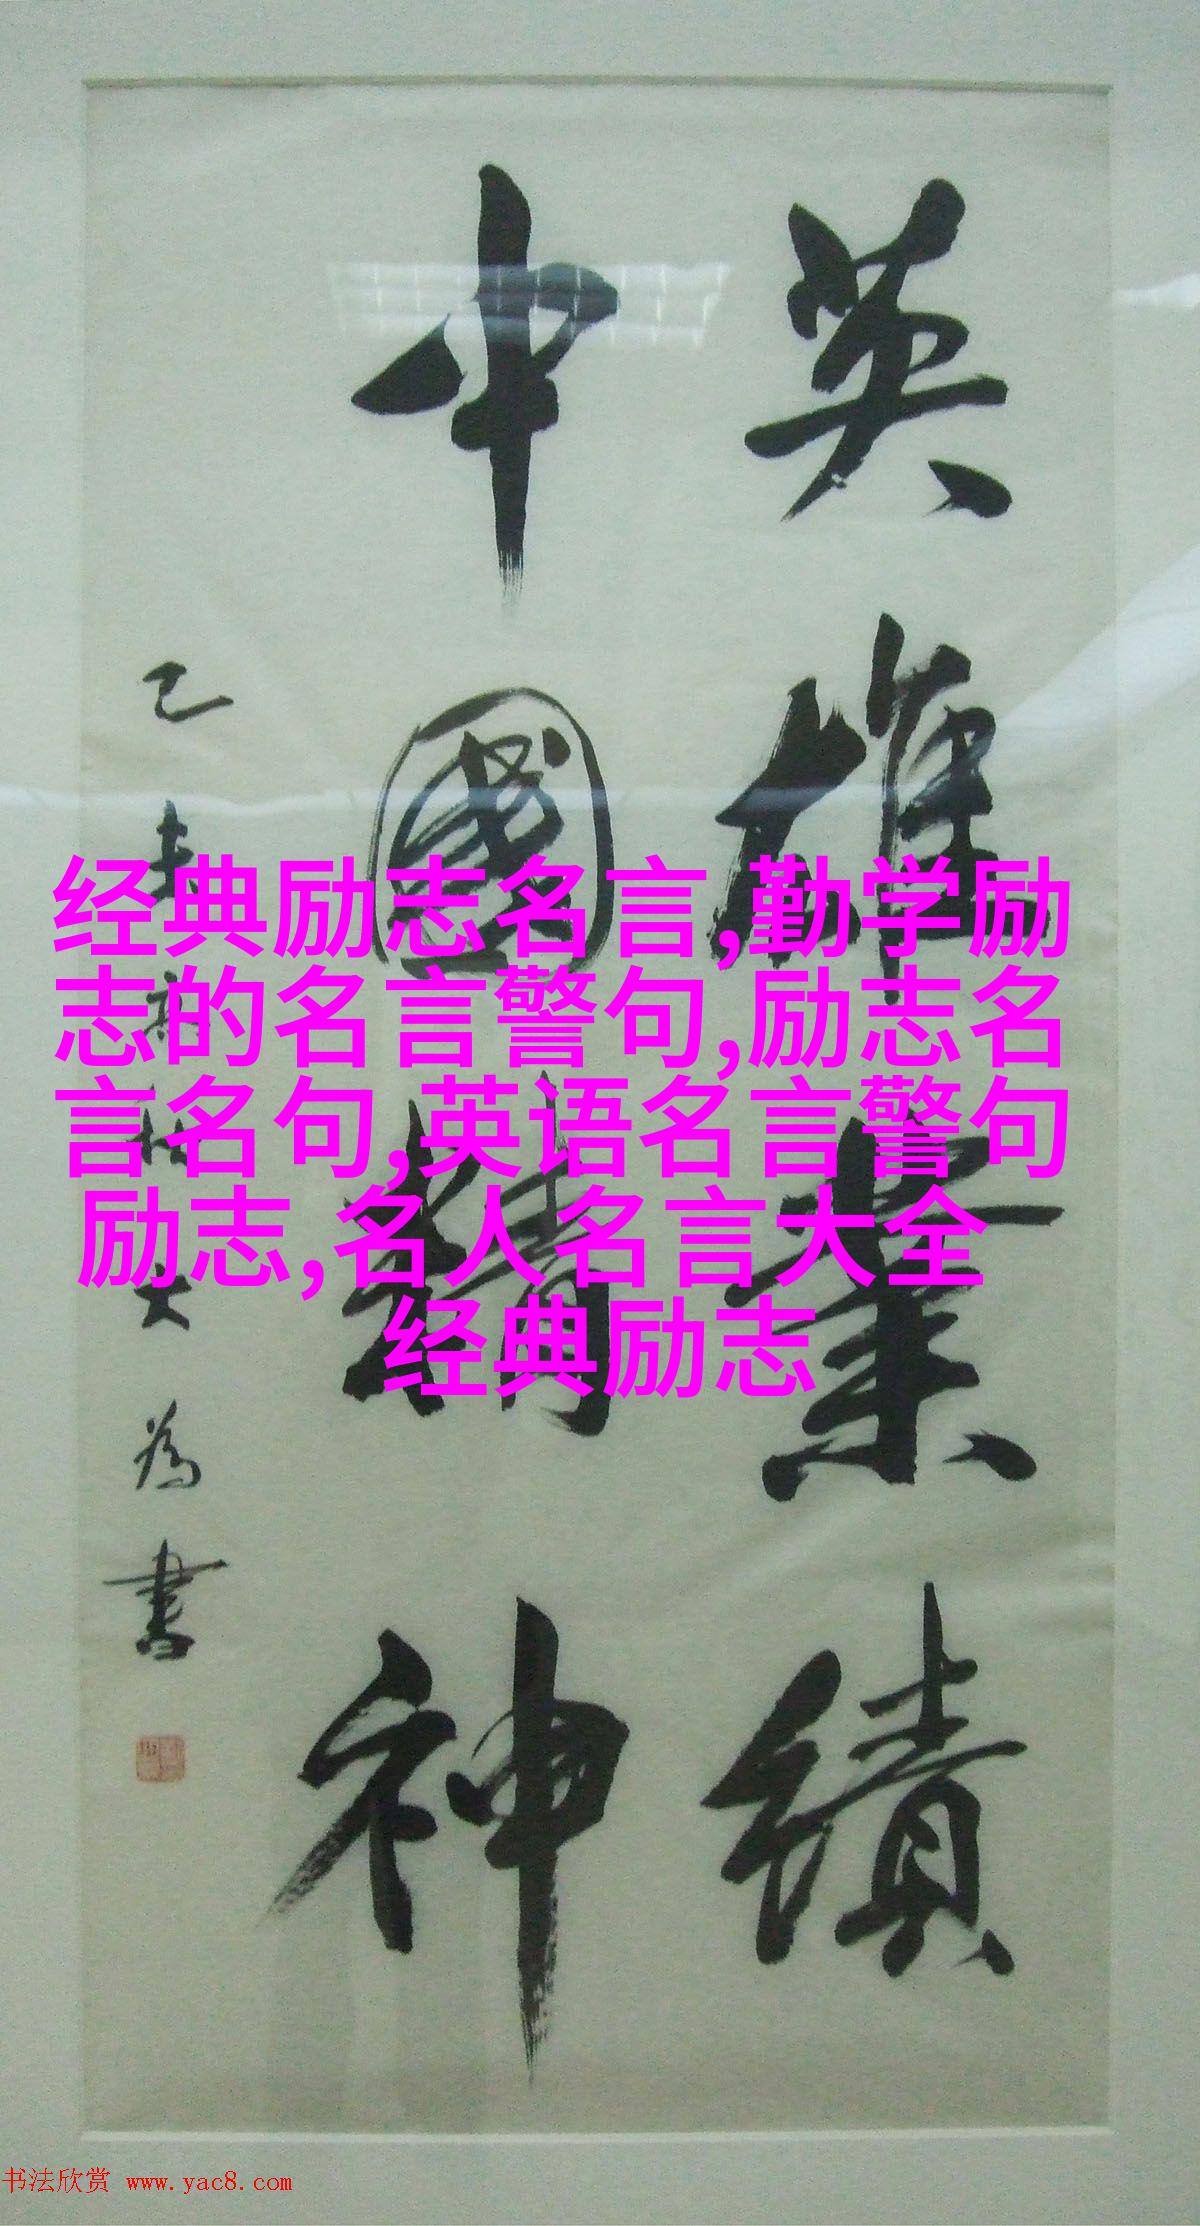 英雄業績
中國精神
乙未
大為書
经典励志名言,勤学励
志的名言警句,励志名
言名句,英语名言警句
励志,名人名言大全
经典励志
书法欣赏 www.yac8.com